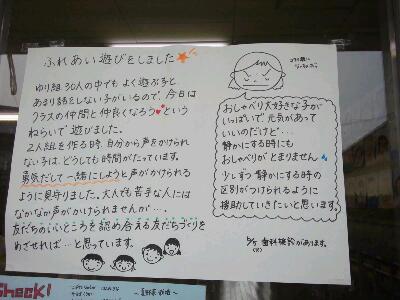 ふれあい遊びをしました
ゆり組30人の中でもよく遊ぶ子と
あまり話をしない子がいるので、今日は
クラスの仲間と仲良くなろう♥という
ねらいで遊びました。
2人組を作る時、自分から声をかけられ
ない子は、どうしても時間がたっています。
勇気だして一緒にしようと声がかけられる
ように見守りました。大人でも苦手な人には
なかなか声がかけられませんが…。
友だちのいいところを認め合える友だちづくりを
めざせれば…と思っています。
おしゃべり大好きな子が
いっぱいで元気があって
いいのだけど…
静かにする時にも
おしゃべりがとまりません
少しずつ静かにする時の
区別がつけられるように
援助していきたいと思います。
歯科検診があります。